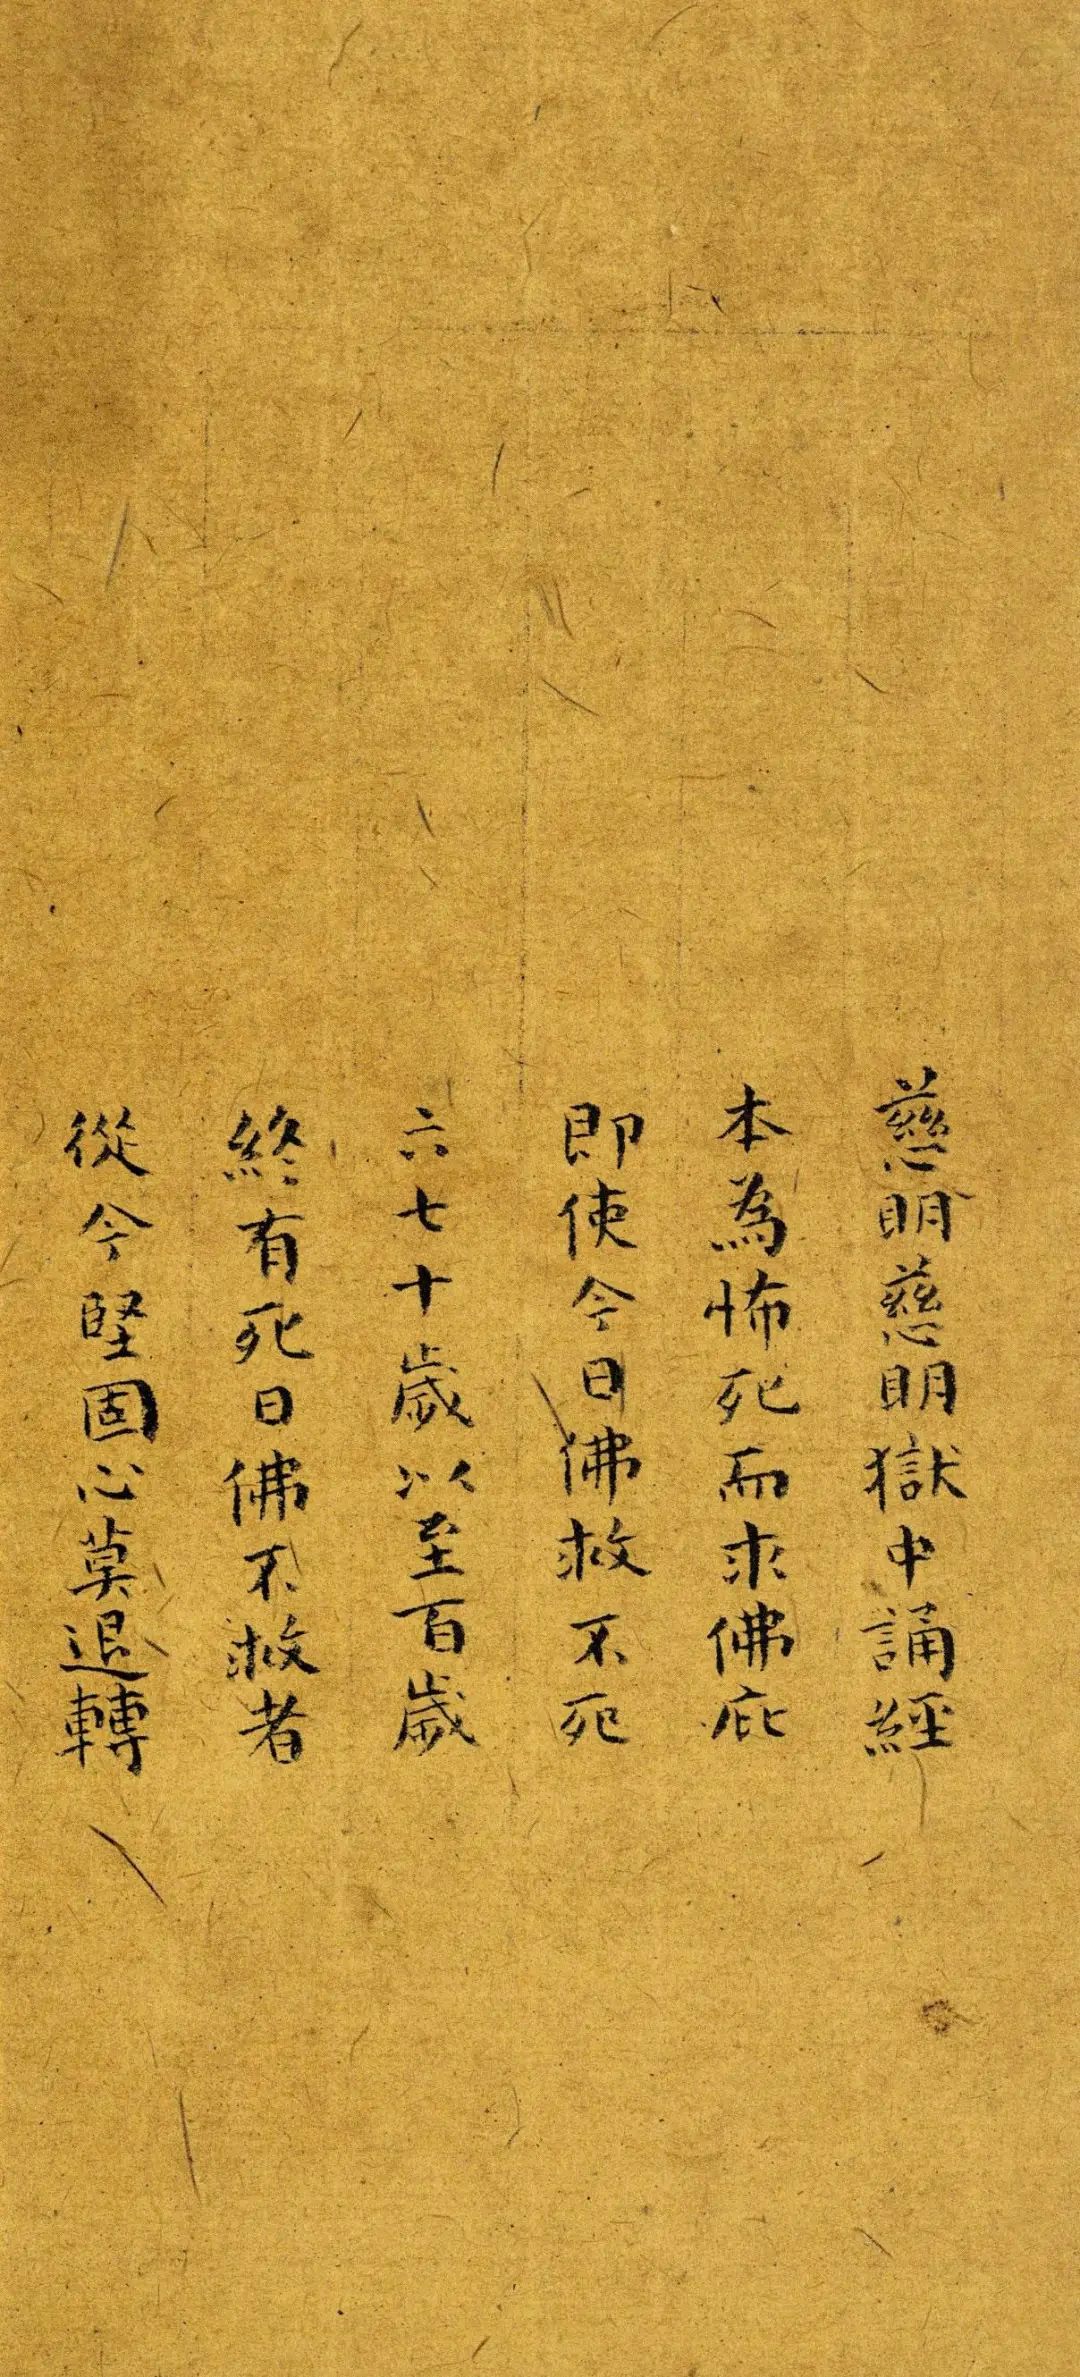 慈明慈明獄中誦經
本為怖死而求佛庇
即使今日佛救不死
六七十歲以至百歲
終有死日佛不救者
從今堅固心莫退轉